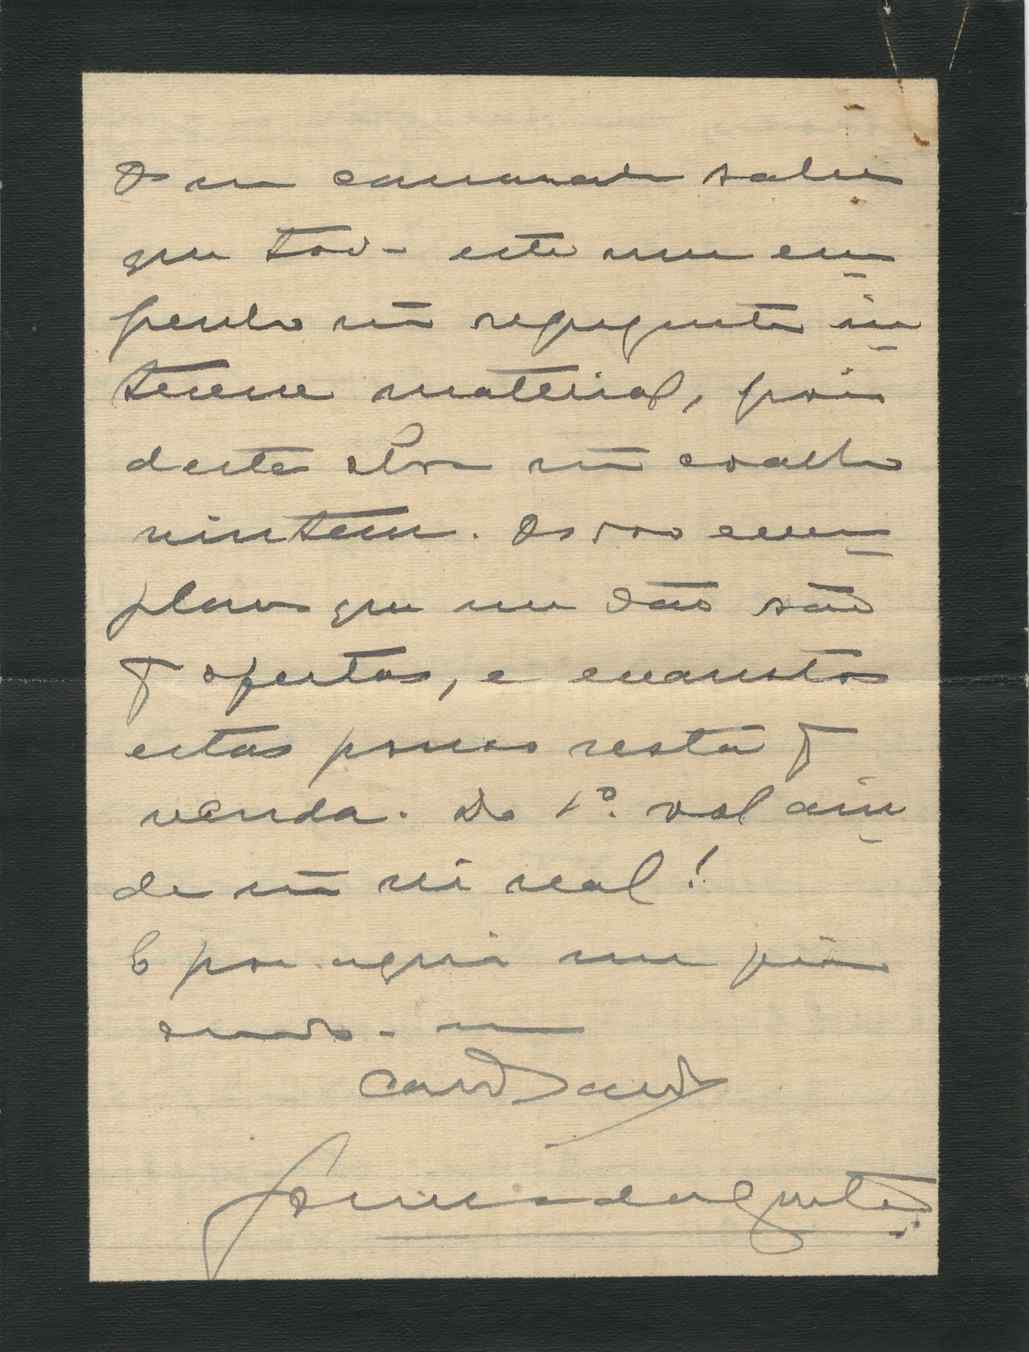 O meu camarada sabe
que todo este meu em
penho não representa in
teresse material, pois
desta obra não colho
vintem. Os 100 exem
plares que me dão são
pª ofertas, e exaustos
estas poucos restão pª
venda. Do 1º. vol ain
da não vi real!
E por aqui me fico
Candido
Guimarães